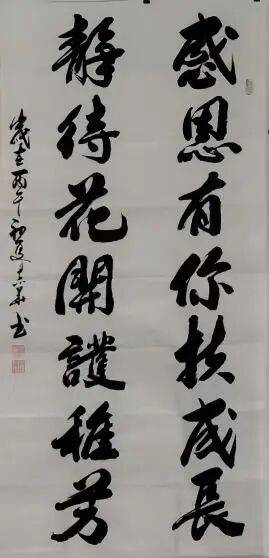 感恩有你扶成長
靜待花開護稚芳
歲在丙午
書